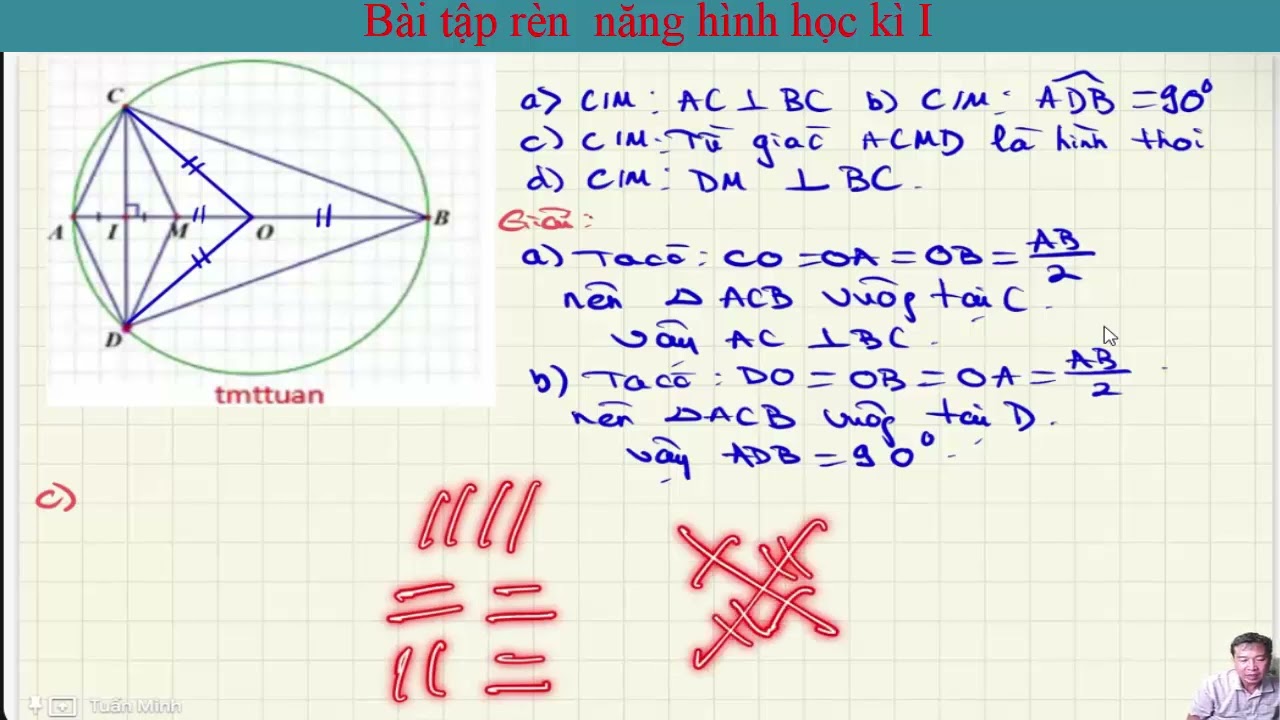 Bài tập rèn năng hình học kì I
C
A I M O B
D
tmttuan
a) C/M : AC ⊥ BC b) C/M : ADB = 90°
c) C/M : Tứ giác ACMD là hình thoi
d) C/M : DM ⊥ BC.
Giải :
a) Ta có : CO = OA = OB = AB/2
nên Δ ACB vuông tại C.
vậy AC ⊥ BC.
b) Ta có : DO = OB = OA = AB/2
nên Δ ACB vuông tại D.
vậy ADB = 90°.
c)
Tuấn Minh